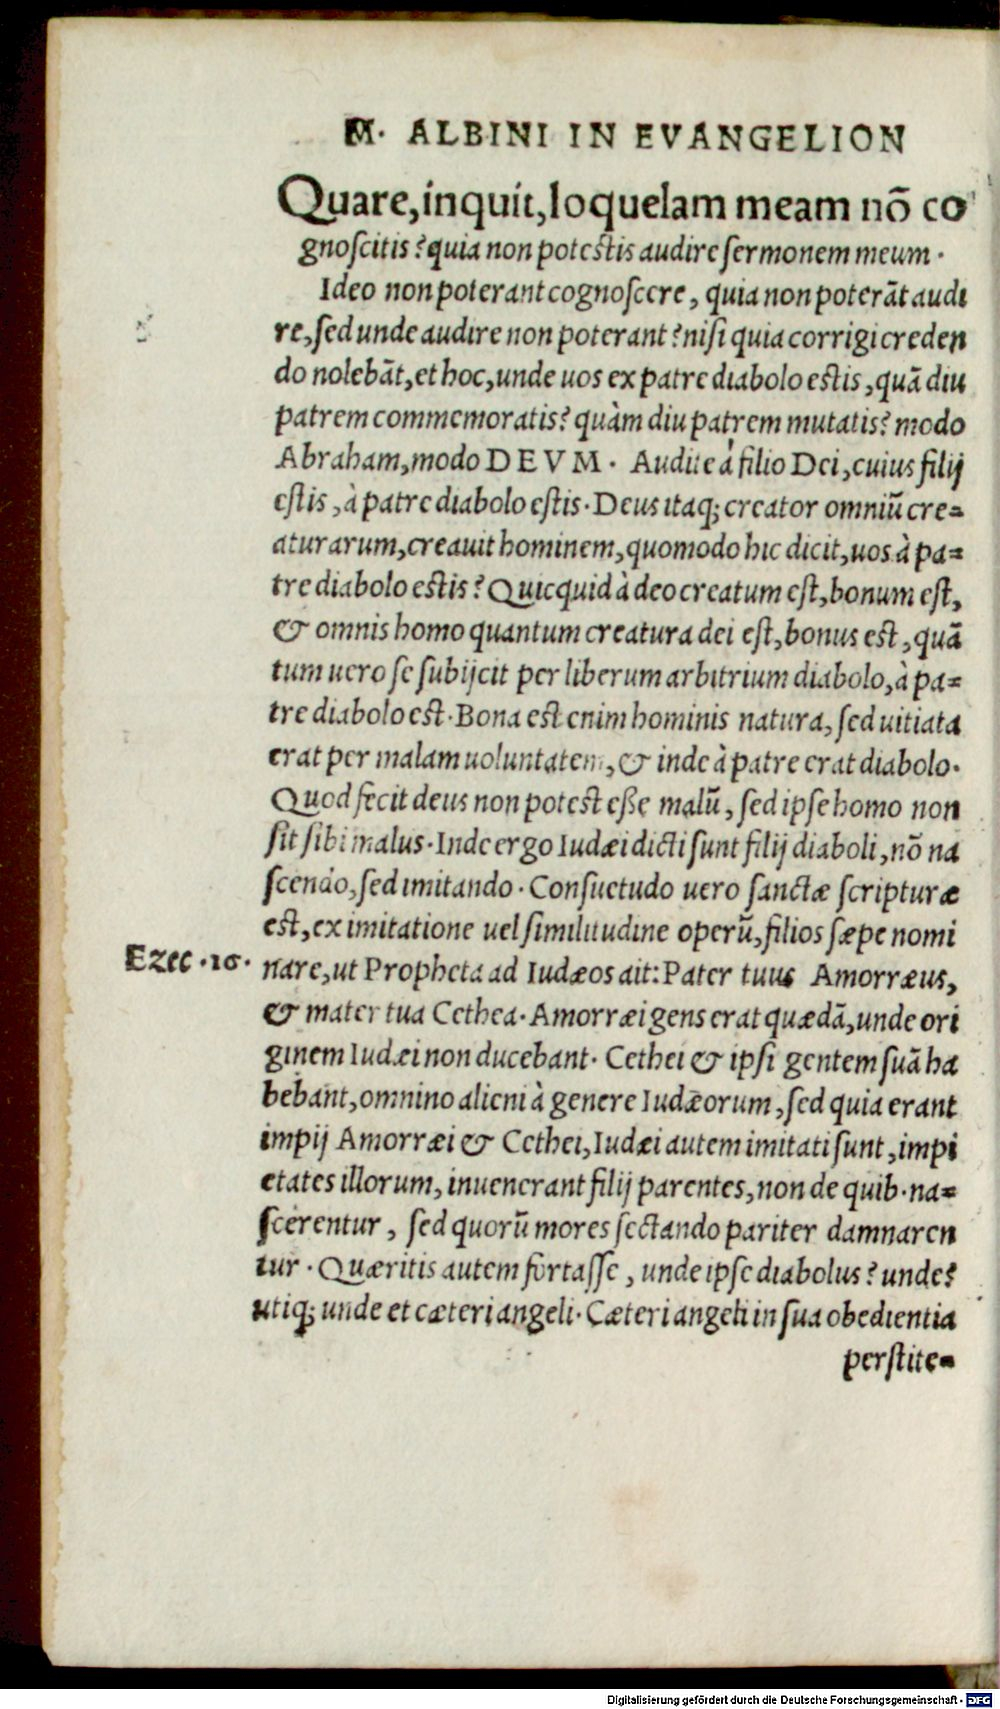 M. ALBINI IN EVANGELION
Quare, inquit, loquelam meam nō co
gnoſcitis? quia non poteſtis audire ſermonem meum.
Ideo non poterant cognoſcere, quia non poterāt audi
re, ſed unde audire non poterant? niſi quia corrigi creden
do nolebāt, et hoc, unde uos ex patre diabolo eſtis, quā diu
patrem commemoratis? quàm diu patrem mutatis? modo
Abraham, modo DEVM. Audite à filio Dei, cuius filij
eſtis, à patre diabolo eſtis. Deus itaq; creator omniū cre=
aturarum, creauit hominem, quomodo hic dicit, uos à pa=
tre diabolo eſtis? Quicquid à deo creatum eſt, bonum eſt,
& omnis homo quantum creatura dei eſt, bonus eſt, quā
tum uero ſe ſubijcit per liberum arbitrium diabolo, à pa=
tre diabolo eſt. Bona eſt enim hominis natura, ſed uitiata
erat per malam uoluntatem, & inde à patre erat diabolo.
Quod fecit deus non poteſt eſſe malū, ſed ipſe homo non
ſit ſibi malus. Inde ergo Iudæi dicti ſunt filij diaboli, nō na
ſcendo, ſed imitando. Conſuetudo uero ſanctæ ſcripturæ
eſt, ex imitatione uel ſimilitudine operū, filios ſæpe nomi
Ezec .16. nare, ut Propheta ad Iudæos ait: Pater tuus Amorræus,
& mater tua Cethea. Amorræi gens erat quædā, unde ori
ginem Iudæi non ducebant. Cethei & ipſi gentem ſuā ha
bebant, omnino alieni à genere Iudæorum, ſed quia erant
impij Amorræi & Cethei, Iudæi autem imitati ſunt, impi
etates illorum, inuenerant filij parentes, non de quib. na=
ſcerentur, ſed quorū mores ſectando pariter damnaren
tur. Quæritis autem fortaſſe, unde ipſe diabolus? unde?
utiq; unde et cæteri angeli. Cæteri angeli in ſua obedientia
perſtite=
Digitalisierung gefördert durch die Deutsche Forschungsgemeinschaft - DFG